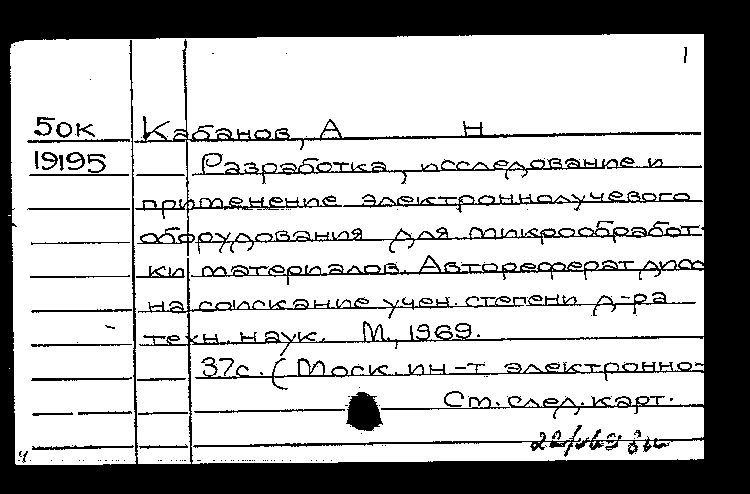 1
50к Кабанов, А Н
19195 Разработка, исследование и
применение электроннолучевого
оборудования для микрообработ-
ки материалов. Автореферат дисс
на соискание учен. степени д-ра
техн. наук. М., 1969.
37с. (Моск. ин-т электронно-
См. след. карт.